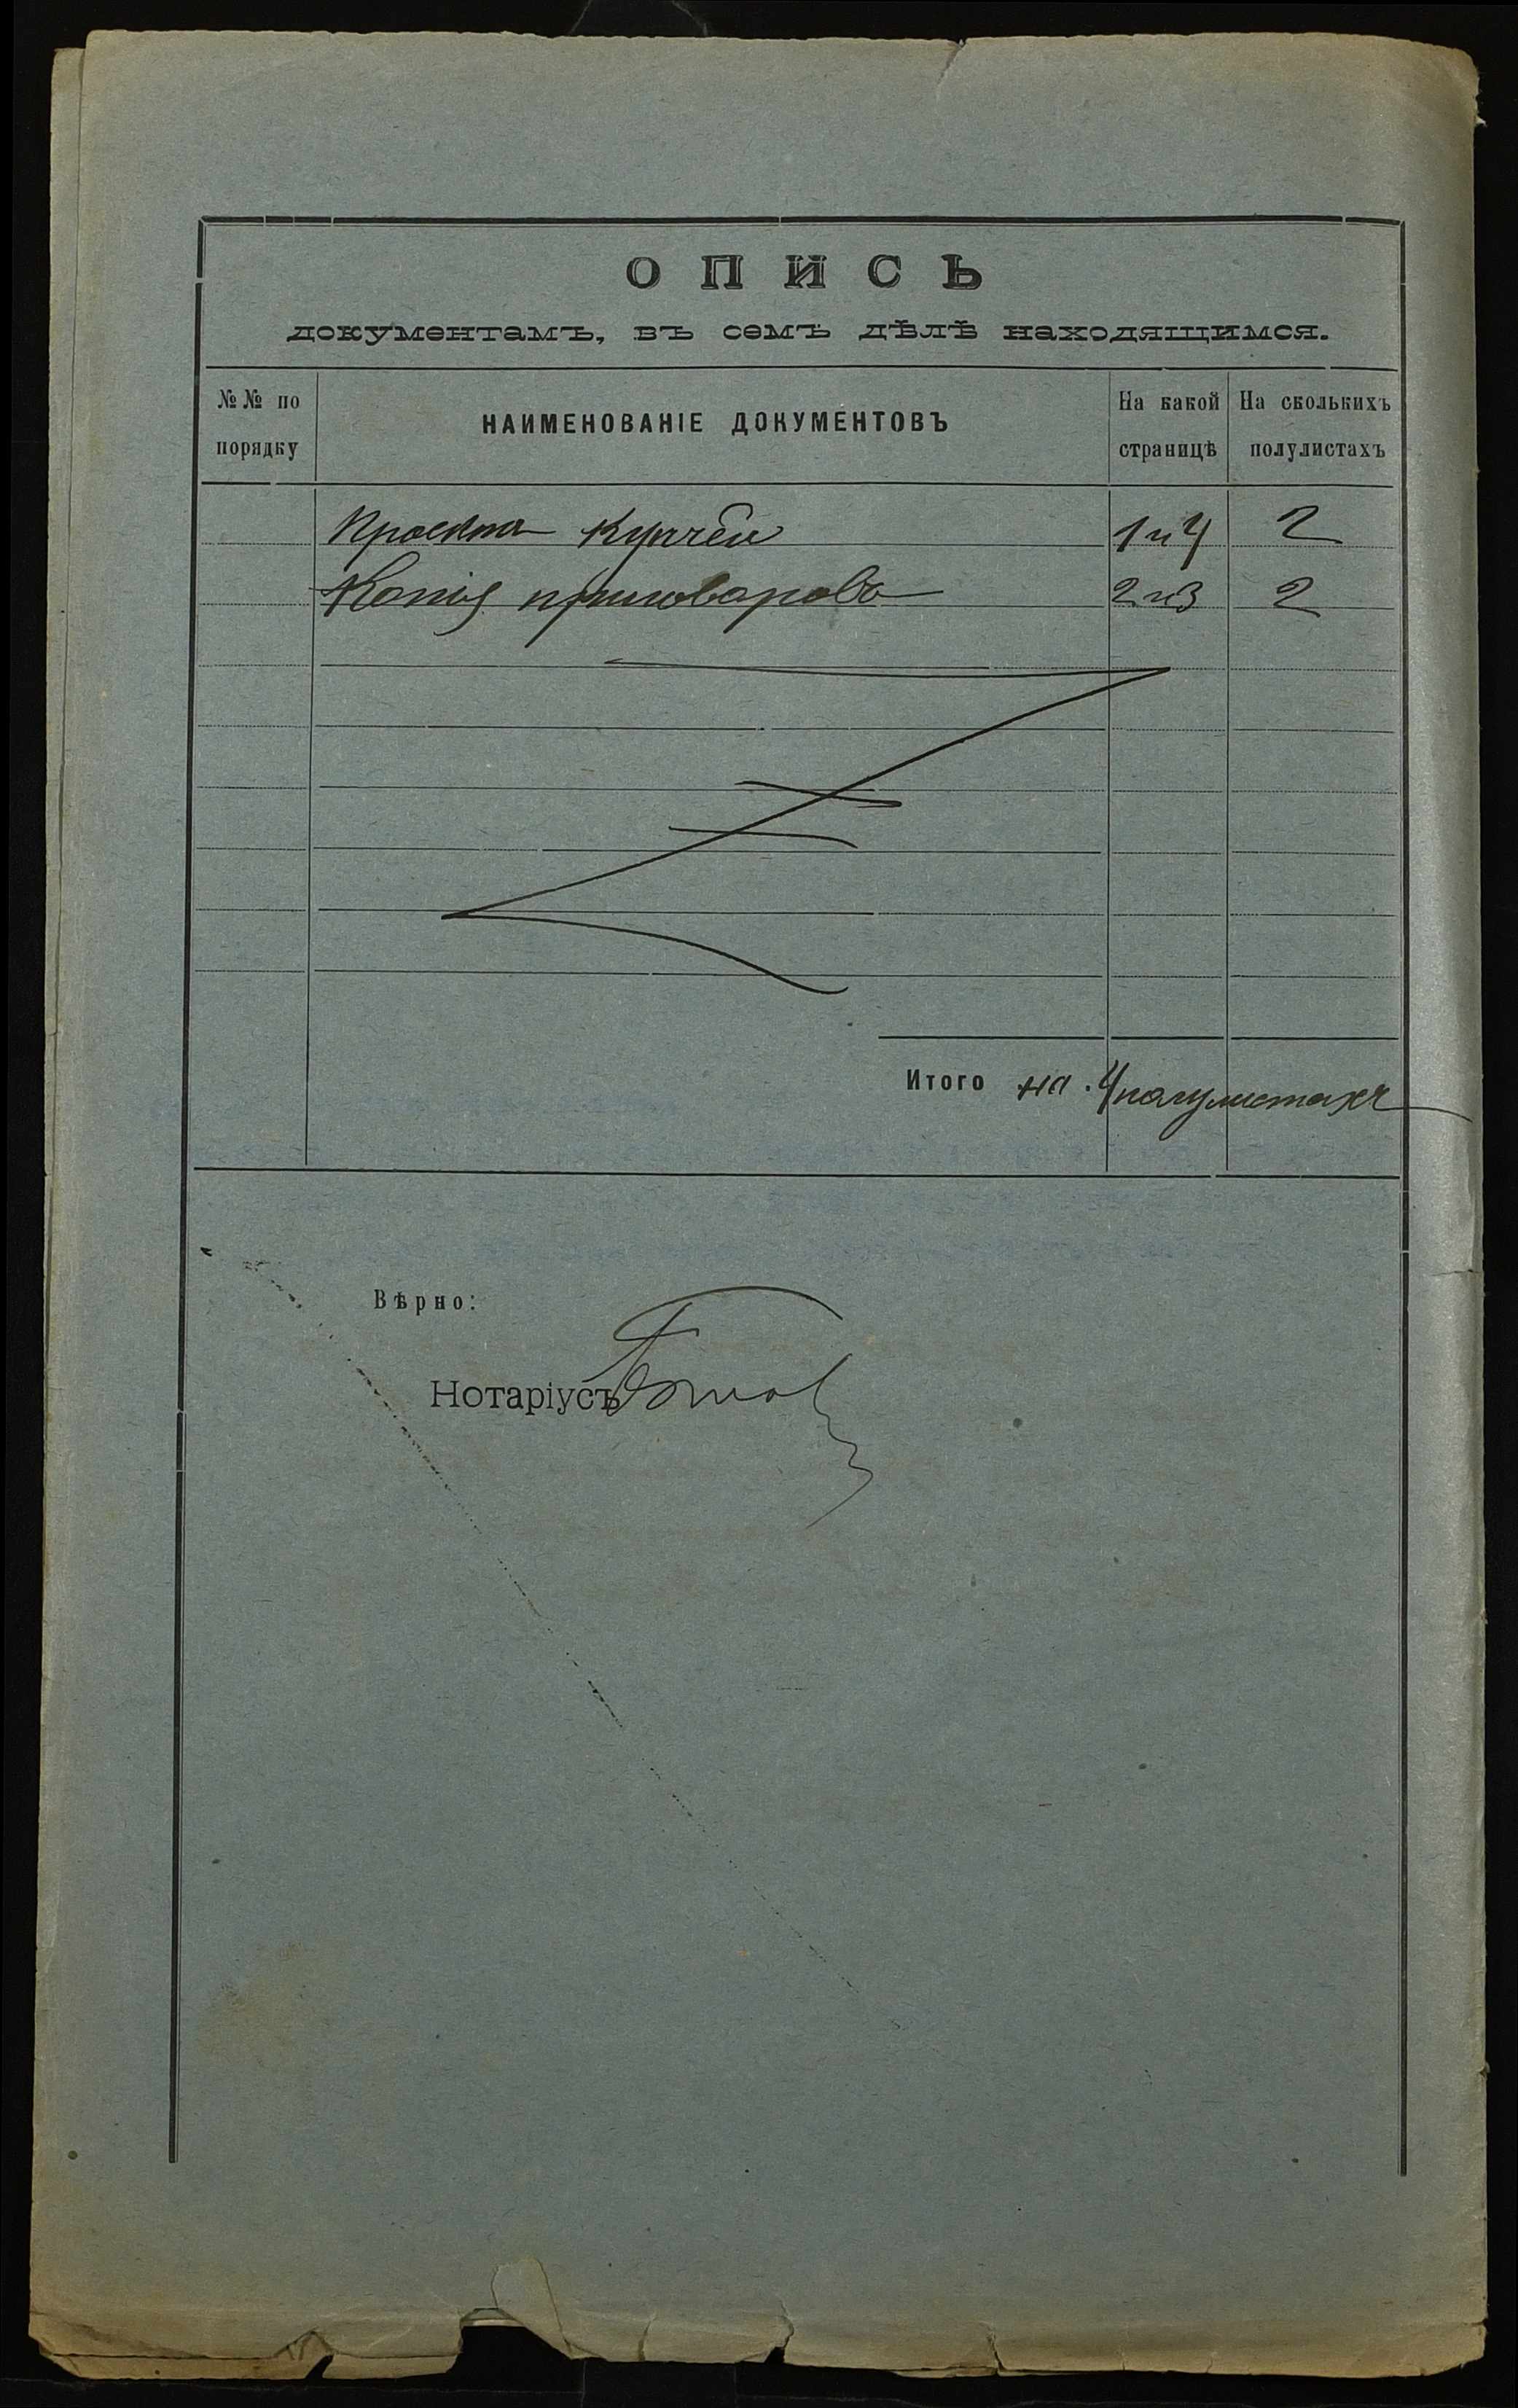 ОПИСЬ
документамъ, въ семъ дѣлѣ находящимся.
№№ по порядку
НАИМЕНОВАНІЕ ДОКУМЕНТОВЪ
На какой страницѣ
На сколькихъ полулистахъ
Проектъ Купчей 1 и 4 2
Копія приговоровъ 2 и 3 2
Итого на 4 полулистахъ
Вѣрно:
Нотаріусъ